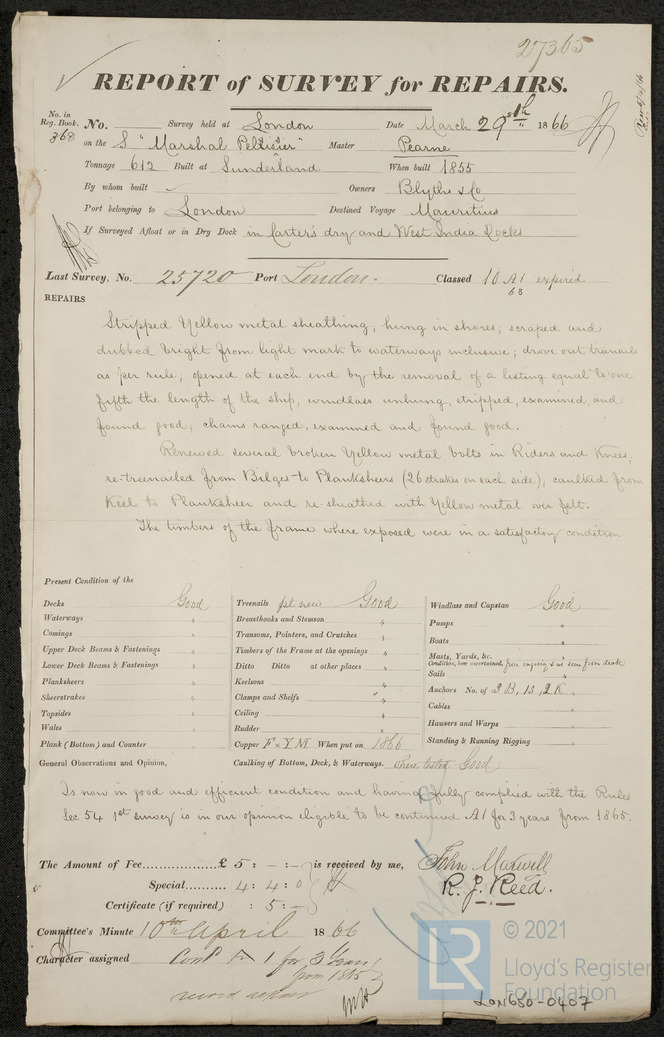 27365
REPORT of SURVEY for REPAIRS.
No. in Reg. Book. 368 No. Survey held at London Date March 29th 1866
on the S "Marshal Pelissier" Master Pearne
Tonnage 612 Built at Sunderland When built 1855
By whom built Owners Blyths & Co
Port belonging to London Destined Voyage Mauritius
If Surveyed Afloat or in Dry Dock in Carter's dry and West India Docks
Last Survey, No. 25720 Port London. Classed 10 A1 expired
63
REPAIRS
Stripped Yellow metal sheathing, hung in shores, scraped and
dubbed bright from light mark to waterways inclusive; drove out treenails
as per rule, opened at each end by the removal of a listing equal to one
fifth the length of the ship, windlass unhung, stripped, examined, and
found good; chains ranged, examined and found good.
Renewed several broken Yellow metal bolts in Riders and Knees,
re-treenailed from Bilges to Planksheers (26 strakes on each side), caulked from
Keel to Planksheer and re-sheathed with Yellow metal over felt.
The timbers of the frame where exposed were in a satisfactory condition
Present Condition of the
Decks Good Treenails pt new Good Windlass and Capstan Good
Waterways " Breasthooks and Stemson " Pumps "
Comings " Transoms, Pointers, and Crutches " Boats "
Upper Deck Beams & Fastenings " Timbers of the Frame at the openings " Masts, Yards, &c. "
Condition, how ascertained, from enquiry & as seen from deck
Lower Deck Beams & Fastenings " Ditto Ditto at other places " Sails "
Planksheers " Keelsons " Anchors No. of 3 B, 1 S, 2 K "
Sheerstrakes " Clamps and Shelfs " Cables "
Topsides " Ceiling " Hausers and Warps "
Wales " Rudder " Standing & Running Rigging "
Plank (Bottom) and Counter " Copper F & YM When put on 1866
General Observations and Opinion, Caulking of Bottom, Deck, & Waterways. where tested Good
Is now in good and efficient condition and having fully complied with the Rules
Sec 54 1st survey is in our opinion eligible to be continued A1 for 3 years from 1865.
The Amount of Fee............... £ 5 : - : - is received by me, John Maxwell
Special.......... 4 : 4 : 0 R. J. Reed.
Certificate (if required) : 5 : -
Committee's Minute 10th April 1866
Character assigned Contd A 1 for 3 years
from 1865
record repairs
© 2021
LR Lloyd's Register
Foundation
LON680-0407